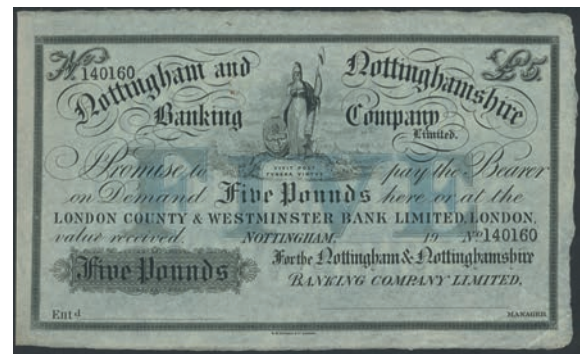 No 140160 £5
Nottingham and Nottinghamshire
Banking Company
Limited.
VIVIT POST FUNERA VIRTUS
FIVE
I Promise to pay the Bearer
on Demand Five Pounds here or at the
LONDON COUNTY & WESTMINSTER BANK LIMITED, LONDON,
value received. NOTTINGHAM. 19 No 140160
Five Pounds For the Nottingham & Nottinghamshire
BANKING COMPANY LIMITED.
Entd MANAGER.